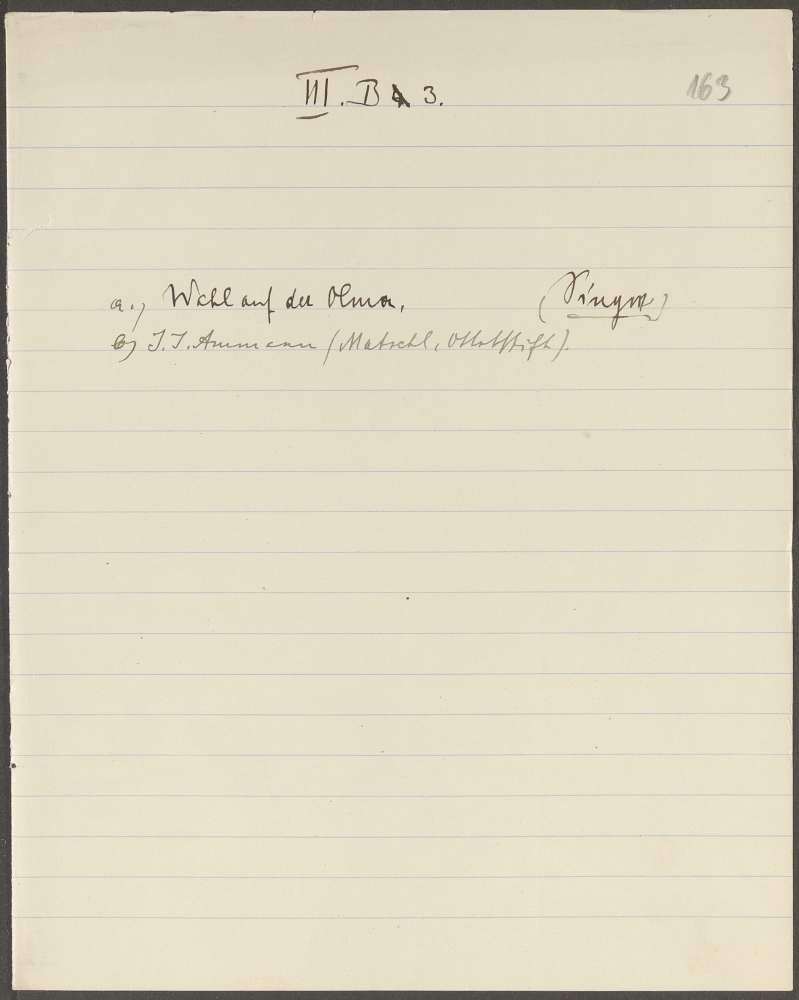 III. B 3.
163
a.) Wahl auf der Olma, (Singer)
b) J. J. Ammann (Matschl,